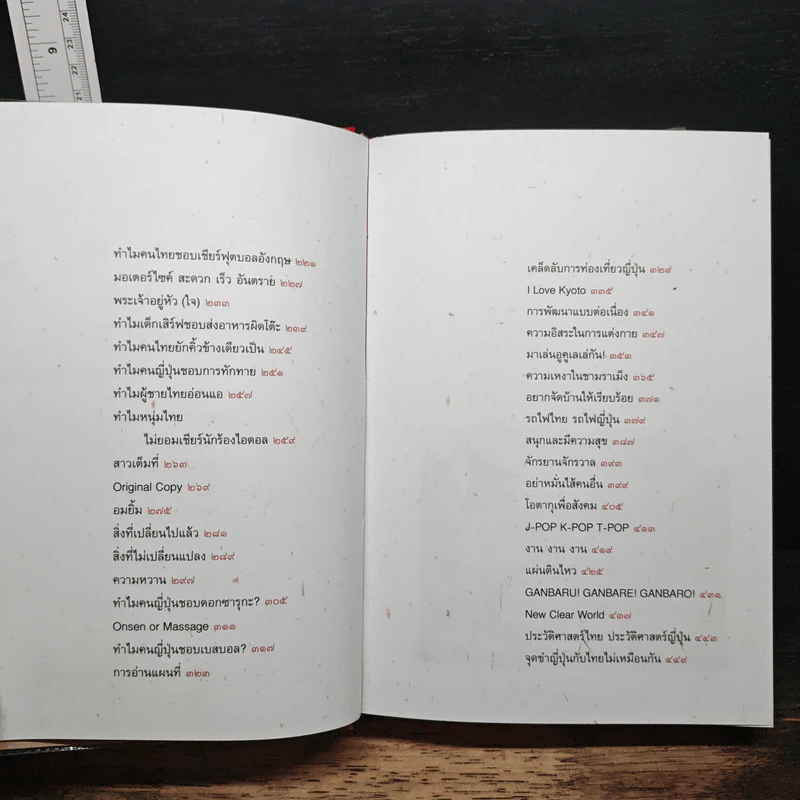 ทำไมคนไทยชอบเชียร์ฟุตบอลอังกฤษ ๒๒๑
มอเตอร์ไซค์ สะดวก เร็ว อันตราย ๒๒๗
พระเจ้าอยู่หัว (ใจ) ๒๓๓
ทำไมเด็กเสิร์ฟชอบส่งอาหารผิดโต๊ะ ๒๓๙
ทำไมคนไทยยักคิ้วข้างเดียวเป็น ๒๔๕
ทำไมคนญี่ปุ่นชอบการทักทาย ๒๕๑
ทำไมผู้ชายไทยอ่อนแอ ๒๕๗
ทำไมหนุ่มไทย
ไม่ยอมเชียร์นักร้องไอดอล ๒๕๙
สาวเต็มที่ ๒๖๓
Original Copy ๒๖๙
อมยิ้ม ๒๗๕
สิ่งที่เปลี่ยนไปแล้ว ๒๘๑
สิ่งที่ไม่เปลี่ยนแปลง ๒๘๙
ความหวาน ๒๙๗
ทำไมคนญี่ปุ่นชอบดอกซากุระ? ๓๐๕
Onsen or Massage ๓๑๑
ทำไมคนญี่ปุ่นชอบเบสบอล? ๓๑๗
การอ่านแผนที่ ๓๒๓
เคล็ดลับการท่องเที่ยวญี่ปุ่น ๓๒๙
I Love Kyoto ๓๓๕
การพัฒนาแบบต่อเนื่อง ๓๔๑
ความอิสระในการแต่งกาย ๓๔๗
มาเล่นอูคูเลเล่กัน! ๓๕๓
ความเหงาในชามราเม็ง ๓๖๕
อยากจัดบ้านให้เรียบร้อย ๓๗๑
รถไฟไทย รถไฟญี่ปุ่น ๓๗๙
สนุกและมีความสุข ๓๘๗
จักรยานจักรวาล ๓๙๓
อย่าหมั่นไส้คนอื่น ๓๙๙
โอตากุเพื่อสังคม ๔๐๕
J-POP K-POP T-POP ๔๑๓
งาน งาน งาน ๔๑๙
แผ่นดินไหว ๔๒๕
GANBARU! GANBARE! GANBARO! ๔๓๑
New Clear World ๔๓๗
ประวัติศาสตร์ไทย ประวัติศาสตร์ญี่ปุ่น ๔๔๓
จุดขำญี่ปุ่นกับไทยไม่เหมือนกัน ๔๔๙
9
24
23
22
21